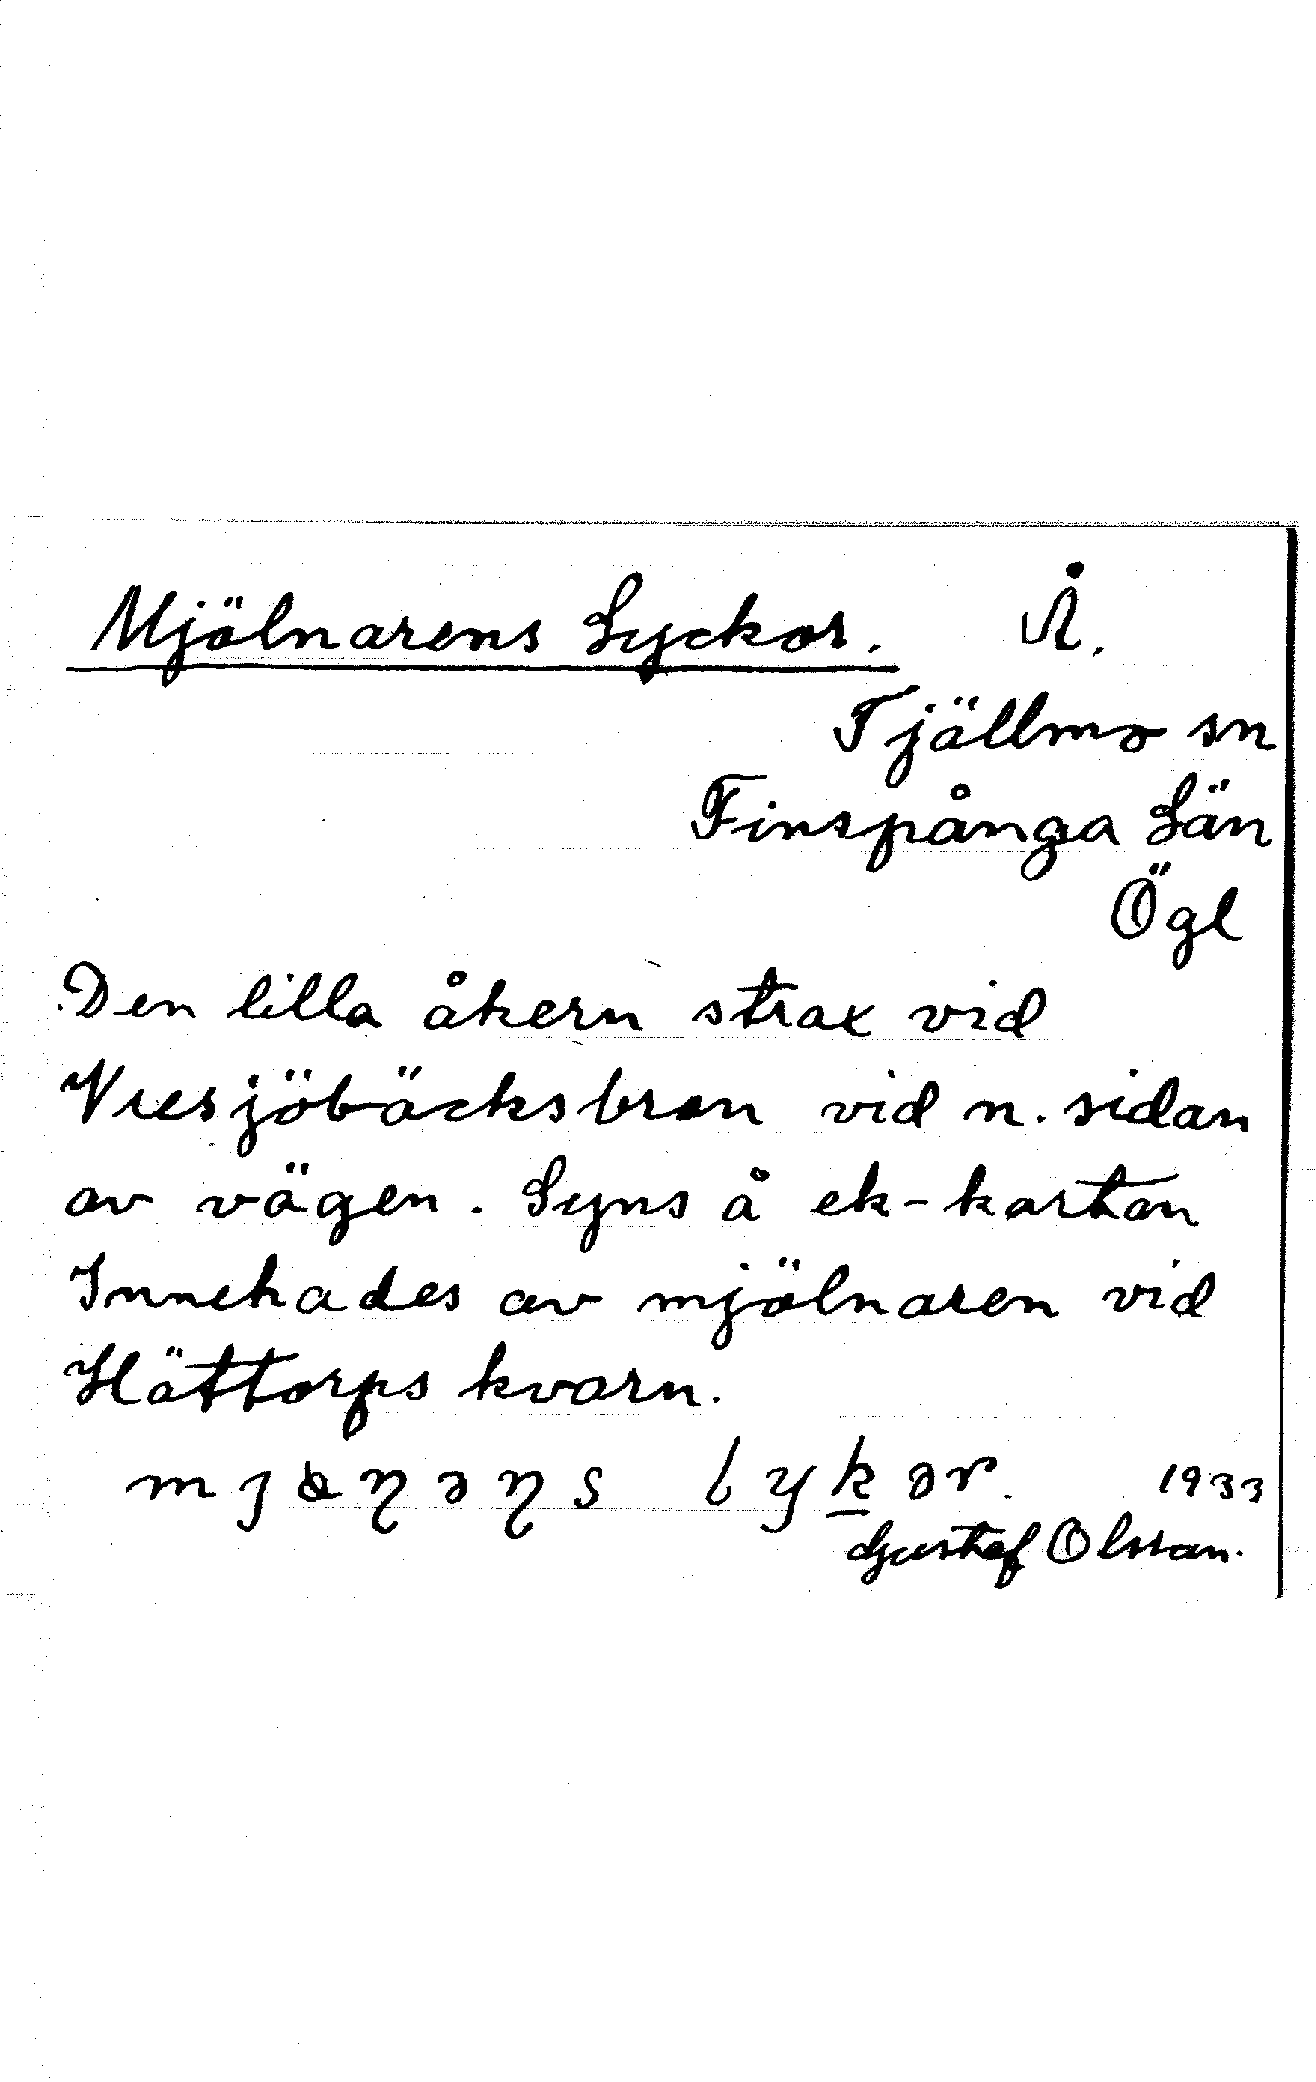 Mjölnarens Lyckor. Å.
Tjällmo sn
Finspånga Län
Ögl
Den lilla åkern strax vid
Vresjöbäcksbron vid n. sidan
av vägen. Syns å ek-kartan
Innehades av mjölnaren vid
Hättorps kvarn.
lykər. 1933
Gustaf Olsson.